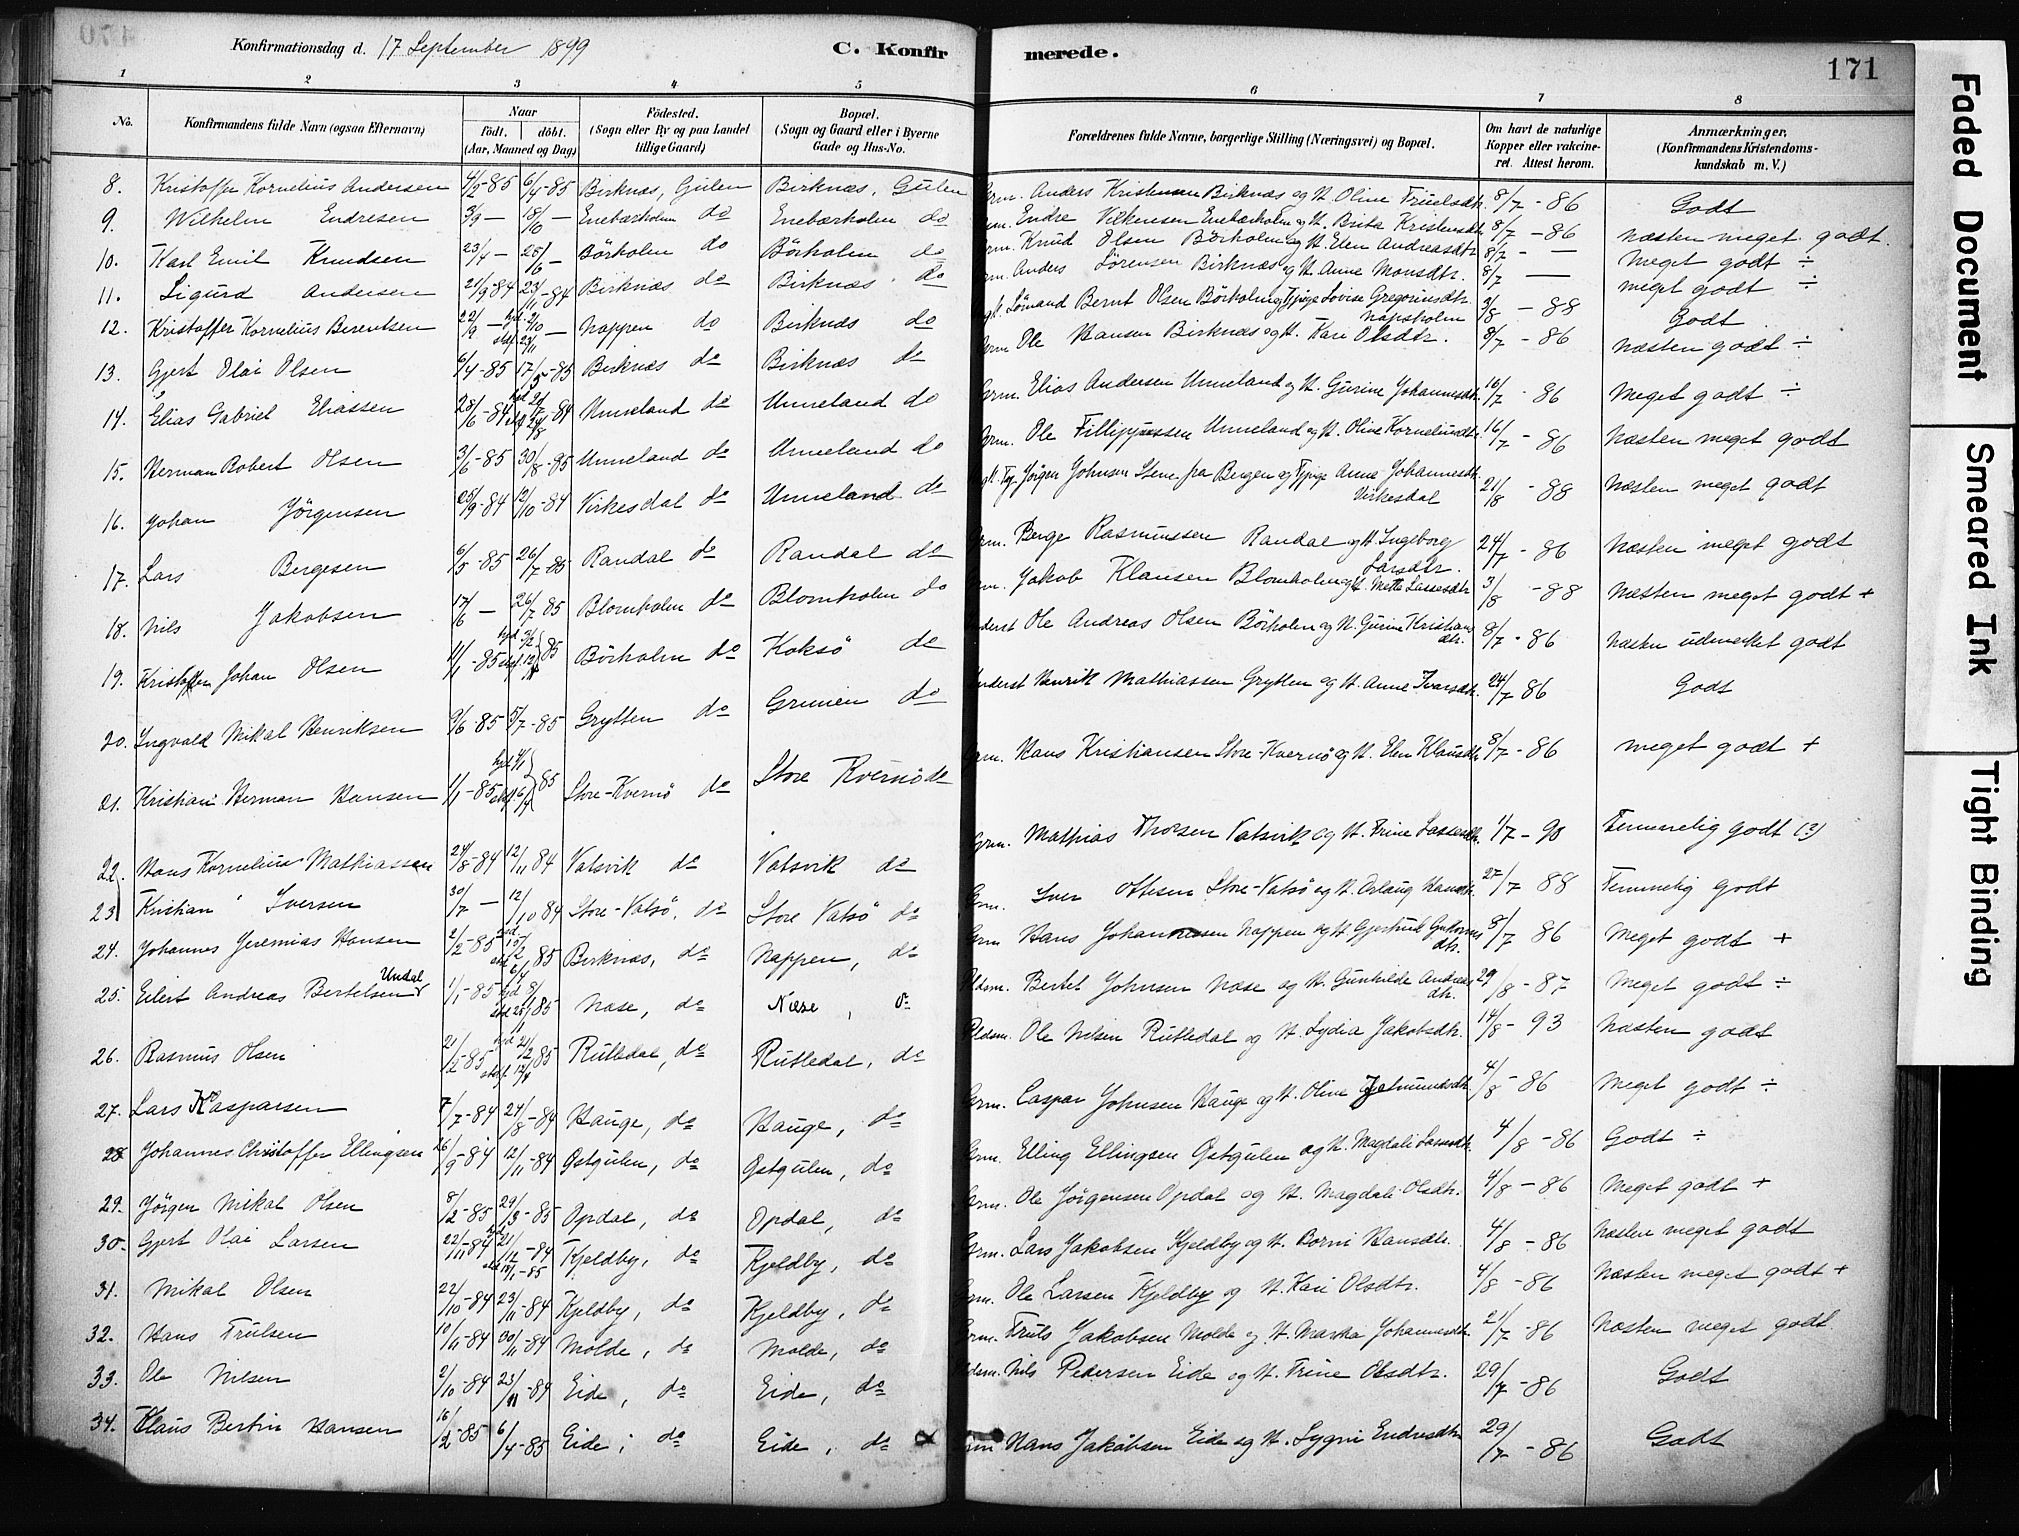 Konfirmationsdag d. 17 September 1899
C. Konfirmerede.
171
1 2 3 4 5 6 7 8
No.
Konfirmandens fulde Navn (ogsaa Efternavn)
Naar
födt. döbt.
(Aar, Maaned og Dag)
Födested.
(Sogn eller By og paa Landet
tillige Gaard)
Bopæl.
(Sogn og Gaard eller i Byerne
Gade og Hus-No.
Forældrenes fulde Navne, borgerlige Stilling (Næringsvei) og Bopæl.
Om havt de naturlige
Kopper eller vakcine-
ret. Attest herom.
Anmærkninger.
(Konfirmandens Kristendoms-
kundskab m. V.)
8. Kristoffer Kornelius Andersen 4/2-85 6/4-85 Birknæs, Gulen Birknæs, Gulen Grm. Anders Kristensen Birknæs og H. Oline Trulsdtr. 8/7 - 86 Godt
9. Wilhelm Endresen 3/9 — 18/10 — Enebærholm do Enebærholm do Endre Vilkensen Enebærholm og H. Brita Kristensdtr 8/7 - 86 næsten meget godt.
10. Karl Emil Knudsen 23/4 — 25/6 — Börholm do Börholm do Knud Olsen Börholm og H. Elen Andreasdtr 8/7 - — Meget godt ÷
11. Sigurd Andersen 21/9-84 23/11-84 Birknæs do Birknæs do Anders Sörensen Birknæs og H. Anne Monsdtr. 8/7 — meget godt ÷
12. Kristoffer Kornelius Berentsen 22/9 — hjd. 2/10 — stdf. 23/11 Nappen do Birknæs do Bernt Olsen Börholm og Tjpige Lovise Gregoriusdtr. Napsholm 3/8 - 88 Godt
13. Gjert Olai Olsen 6/4-85 17/5-85 Birknæs do Birknæs do Grm Ole Hansen Birknæs og H. Kari Olsdtr. 8/7 - 86 næsten godt ÷
14. Elias Gabriel Eliassen 28/6-84 -84 Unneland do Unneland do Grm. Elias Andersen Unneland og H. Gurine Johannesdtr. 16/7 - 86 Meget godt ÷
15. Herman Robert Olsen 3/6-85 30/8-85 Unneland do Unneland do Grm. Ole Fillippussen Unneland og H. Oline Korneliusdtr. 16/7 - 86 Næsten meget godt
16. Johan Jörgensen 25/9-84 12/10-84 Virkesdal do Unneland do Jörgen Johnsen Stene fra Bergen og Tjpige Anna Johannesdtr Virkesdal 21/8 - 88 Næsten meget godt
17. Lars Bergesen 6/5-85 26/7-85 Randal do Randal do Grm. Berge Rasmussen Randal og H. Ingeborg Larsdtr. 24/7 - 86 Næsten meget godt
18. Nils Jakobsen 17/6 — 26/7 85 Blomholm do Blomholm do Jakob Klausen Blomholm og H. Mette Lassesdtr 3/8 - 88 Næsten meget godt +
19. Kristoffer Johan Olsen 11/1-85 85 Börholm do Koksö do Inderst Ole Andreas Olsen Börholm og H. Gurine Kristiansdtr. 8/7 - 86 Næsten udmerket godt
20. Ingvald Mikal Henriksen 9/6-85 5/7-85 Grytten do Grinien do Inderst Henrik Mathiassen Grytten og H. Anne Ivarsdtr. 24/7 86 Godt
21. Kristian Herman Hansen 1/1-85 85 Store-Kvernö do Store Kvernö do Grm. Hans Kristiansen Store-Kvernö og H. Elen Klausdtr 8/7 - 86 meget godt +
22. Hans Kornelius Mathiassen 24/8-84 12/11 84 Vatsvik do Vatsvik do Grm. Mathias Thorsen Vatsvik og H. Trine Lassesdtr. 1/7 - 90 Temmelig godt (3)
23. Kristian Iversen 30/7 — 12/10 84 Store-Vatsö, do Store Vatsö do Grm. Iver Ottesen Store-Vatsö og H. Hansdtr. 27/7 88 Temmelig godt
24. Johannes Jeremias Hansen 2/2-85 85 Birknæs, do Nappen, do Grm Hans Johannessen Nappen og H. Gjertrud dtr. 8/7 86 Meget godt +
25. Eilert Andreas Bertelsen Undal 1/1-85 85 Næse, do Næse, do Pldsm. Bertel Johnsen Næse og H. Gunhilde Andreasdtr. 29/8 - 87 Meget godt ÷
26. Rasmus Olsen 21/2-85 85 Rutledal, do Rutledal, do Pldsm. Ole Nilsen Rutledal og H. Lydia Jakobsdtr. 14/8 - 93 Næsten godt
27. Lars Kasparsen 7/7-84 24/8-84 Hauge, do Hauge, do Grm. Caspar Johnsen Hauge og H. Oline 4/8 - 86 Meget godt ÷
28 Johannes Christoffer Ellingsen 26/9-84 12/11-84 Östgulen, do Östgulen, do Grm. Elling Ellingsen Östgulen og H. Magdali Lassesdtr. 4/8 - 86 Godt ÷
29. Jörgen Mikal Olsen 8/2-85 29/3-85 Opdal, do Opdal, do Grm. Ole Jörgensen Opdal og H. Magdali Olsdtr. 4/8 - 86 Meget godt +
30. Gjert Olai Larsen 22/11-84 21/12-84 Kjeldby, do Kjeldby, do Grm. Lars Jakobsen Kjeldby og H. Borni Hansdtr. 4/8 - 86 Næsten meget godt
31. Mikal Olsen 22/10-84 23/11-84 Kjeldby, do Kjeldby, do Grm. Ole Larsen Kjeldby og H. Kari Olsdtr. 4/8 - 86 Næsten meget godt +
32. Hans Trulsen 10/11-84 30/11-84 Molde, do Molde, do Grm. Truls Jakobsen Molde og H. Marta Johannesdtr. 21/7 - 86 Næsten meget godt
33. Ole Nilsen 2/10-84 23/11-84 Eide, do Eide, do Pldsm. Nils Pedersen Eide og H. Trine Olsdtr. 29/7 - 86 Godt
34. Klaus Bertin Hansen 16/2-85 6/4-85 Eide, do Eide, do Grm Hans Jakobsen Eide og H. Sygni Endresdtr 29/7 - 86 Godt
Faded Document
Smeared Ink
Tight Binding